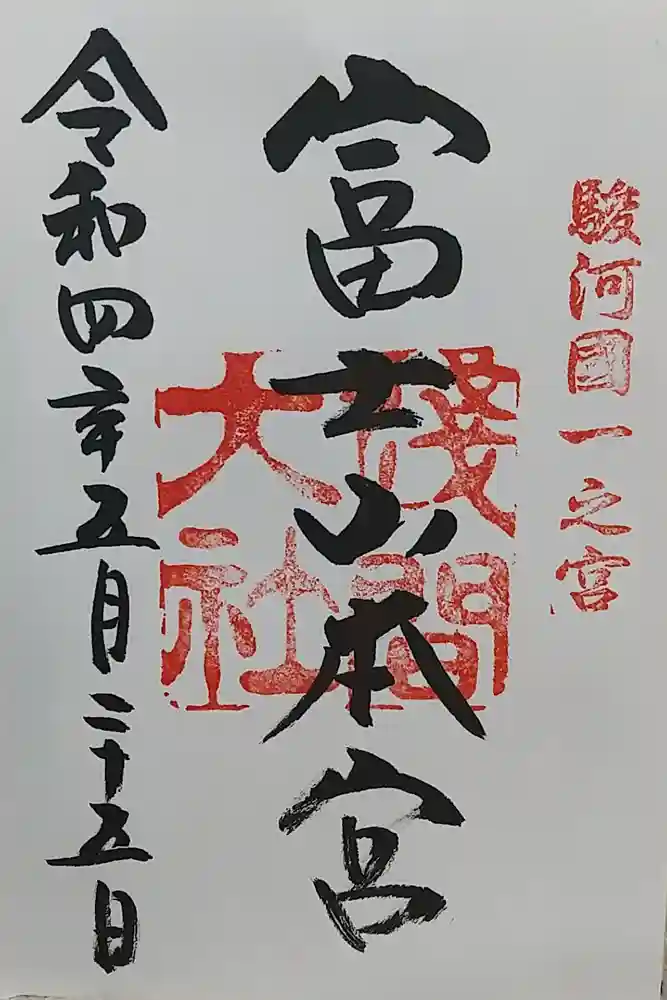 駿河國一之宮
富士山本宮
淺間大社
令和四年五月二十五日